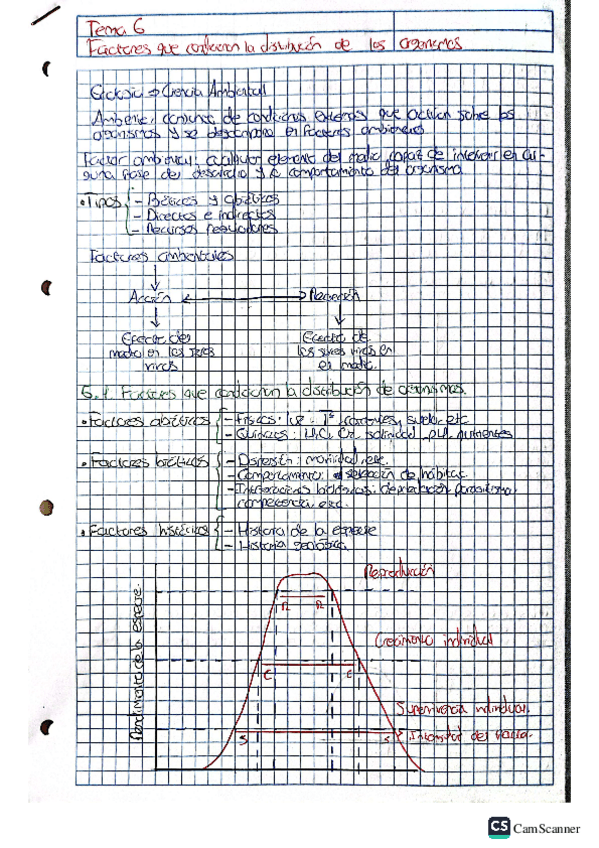 Tema 6
Factores que condicionan la distribución de los organismos
Ecología → Ciencia Ambiental
Ambiente: conjunto de condiciones externas que actúan sobre los
organismos y se descompone en factores ambientales
Factor ambiental: cualquier elemento del medio capaz de intervenir en al-
guna fase del desarrollo y/o comportamiento del organismo.
• Tipos
- Bióticos y abióticos
- Directos e indirectos
- Recursos reguladores
Factores ambientales
Acción
Reacción
Efecto del
medio en los seres
vivos
Efecto de
los seres vivos en
el medio.
6.1. Factores que condicionan la distribución de organismos.
• Factores abióticos
- Físicos: luz, Tª, suelo, etc
- Químicos: H2O, O2, salinidad, pH, nutrientes
• Factores bióticos
- Dispersión: movilidad, etc.
- Comportamiento: selección de hábitat
- Interacciones biológicas: depredación, parasitismo,
competencia, etc.
• Factores históricos
- Historia de la especie
- Historia geológica
Rendimiento de la especie.
Reproducción
R R
Crecimiento individual
C C
Supervivencia individual.
S S
Intensidad del factor.
CS CamScanner